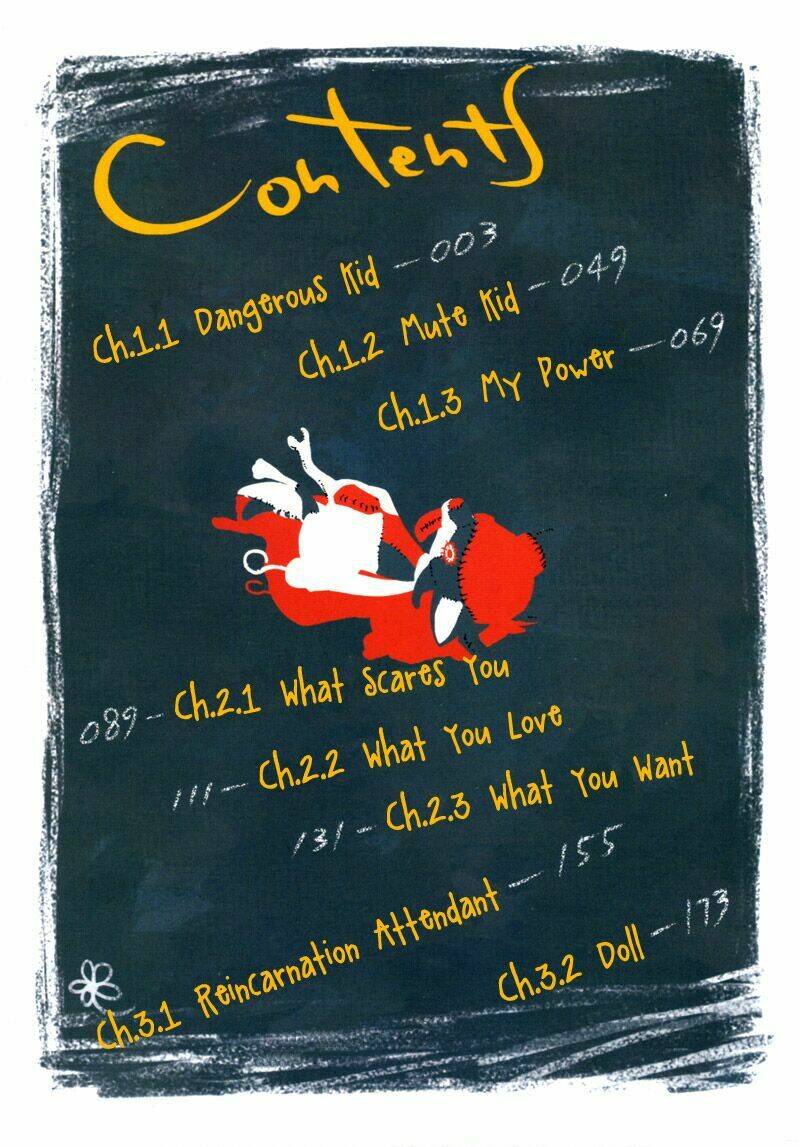 Contents
Ch.1.1 Dangerous Kid — 003
Ch.1.2 Mute Kid — 049
Ch.1.3 My Power — 069
089 — Ch.2.1 What Scares You
111 — Ch.2.2 What You Love
131 — Ch.2.3 What You Want
Ch.3.1 Reincarnation Attendant — 155
Ch.3.2 Doll — 173